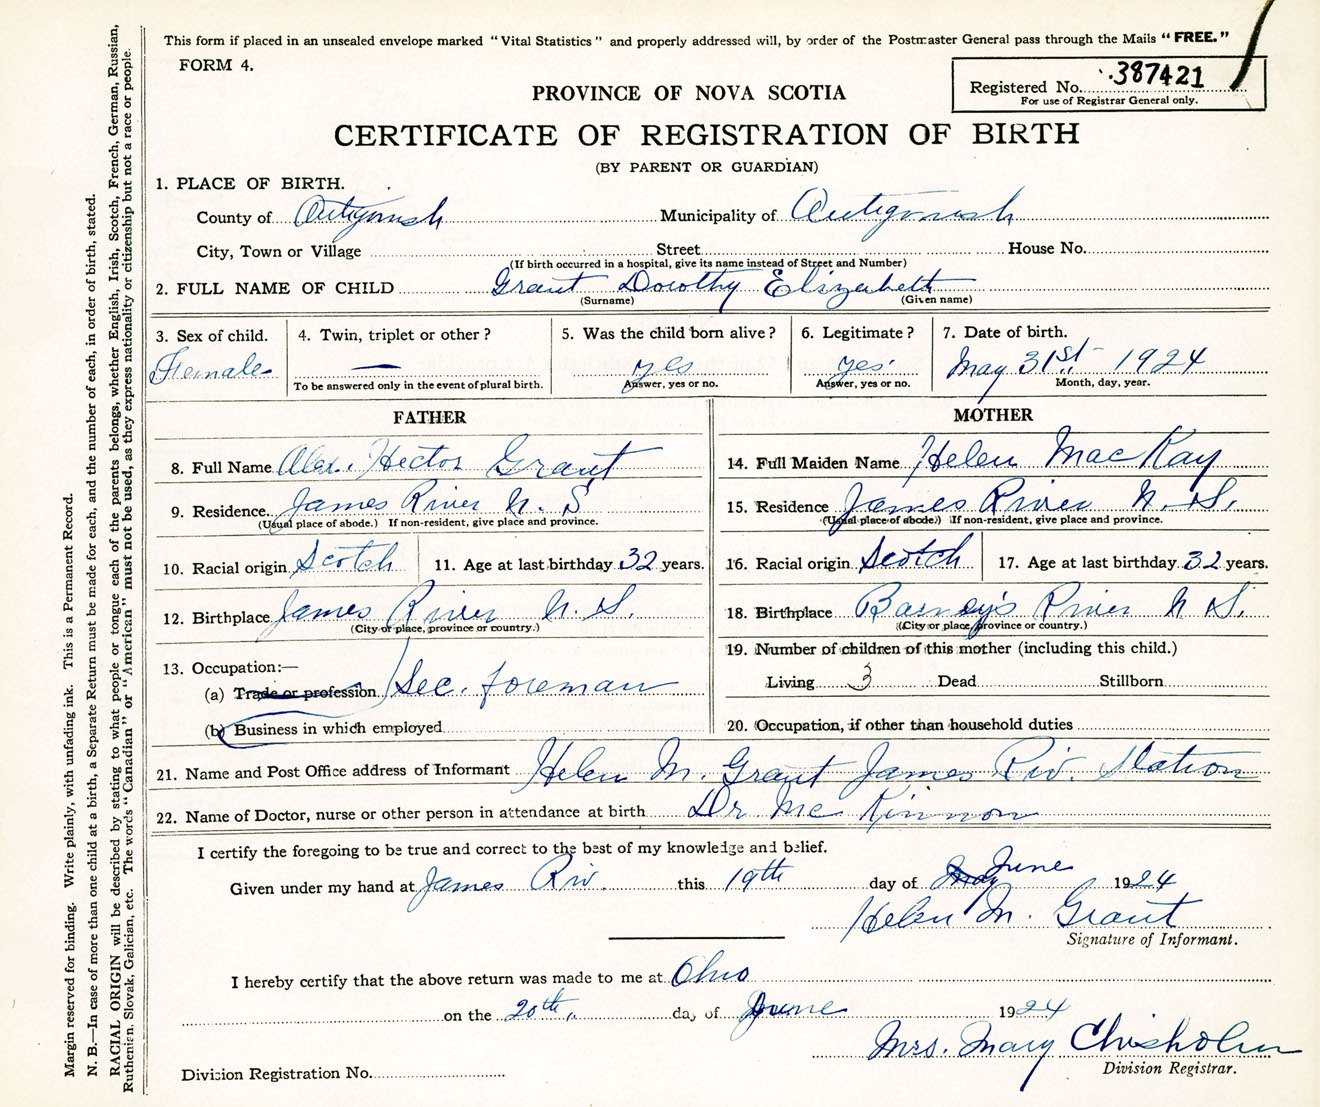 This form if placed in an unsealed envelope marked “Vital Statistics” and properly addressed will, by order of the Postmaster General pass through the Mails “FREE.”
FORM 4.
Registered No. 387421
For use of Registrar General only.
PROVINCE OF NOVA SCOTIA
CERTIFICATE OF REGISTRATION OF BIRTH
(BY PARENT OR GUARDIAN)
1. PLACE OF BIRTH.
County of Antigonish Municipality of Antigonish
City, Town or Village Street House No.
(If birth occurred in a hospital, give its name instead of Street and Number)
2. FULL NAME OF CHILD Grant Dorothy Elizabeth
(Surname) (Given name)
3. Sex of child. 4. Twin, triplet or other? 5. Was the child born alive? 6. Legitimate? 7. Date of birth.
Female — yes yes May 31st 1924
To be answered only in the event of plural birth. Answer, yes or no. Answer, yes or no. Month, day, year.
FATHER
8. Full Name Alex. Hector Grant
9. Residence. James River N. S.
(Usual place of abode.) If non-resident, give place and province.
10. Racial origin Scotch 11. Age at last birthday 32 years.
12. Birthplace James River N. S.
(City or place, province or country.)
13. Occupation:—
(a) Trade or profession Sec. foreman
(b) Business in which employed
MOTHER
14. Full Maiden Name Helen MacKay
15. Residence James River N. S.
(Usual place of abode.) If non-resident, give place and province.
16. Racial origin Scotch 17. Age at last birthday 32 years.
18. Birthplace Barney's River N S.
(City or place, province or country.)
19. Number of children of this mother (including this child.)
Living 3 Dead Stillborn
20. Occupation, if other than household duties
21. Name and Post Office address of Informant Helen M. Grant James Riv. Station
22. Name of Doctor, nurse or other person in attendance at birth Dr McKinnon
I certify the foregoing to be true and correct to the best of my knowledge and belief.
Given under my hand at James Riv. this 19th day of May June 1924
Helen M. Grant
Signature of Informant.
I hereby certify that the above return was made to me at Ohio
on the 20th. day of June 1924
Mrs. Mary Chisholm
Division Registrar.
Division Registration No.
Margin reserved for binding. Write plainly, with unfading ink. This is a Permanent Record.
N. B.—In case of more than one child at a birth, a Separate Return must be made for each, and the number of each, in order of birth, stated.
RACIAL ORIGIN will be described by stating to what people or tongue each of the parents belongs, whether English, Irish, Scotch, French, German, Russian,
Ruthenian, Slovak, Galician, etc. The words “Canadian” or “American” must not be used, as they express nationality or citizenship but not a race or people.